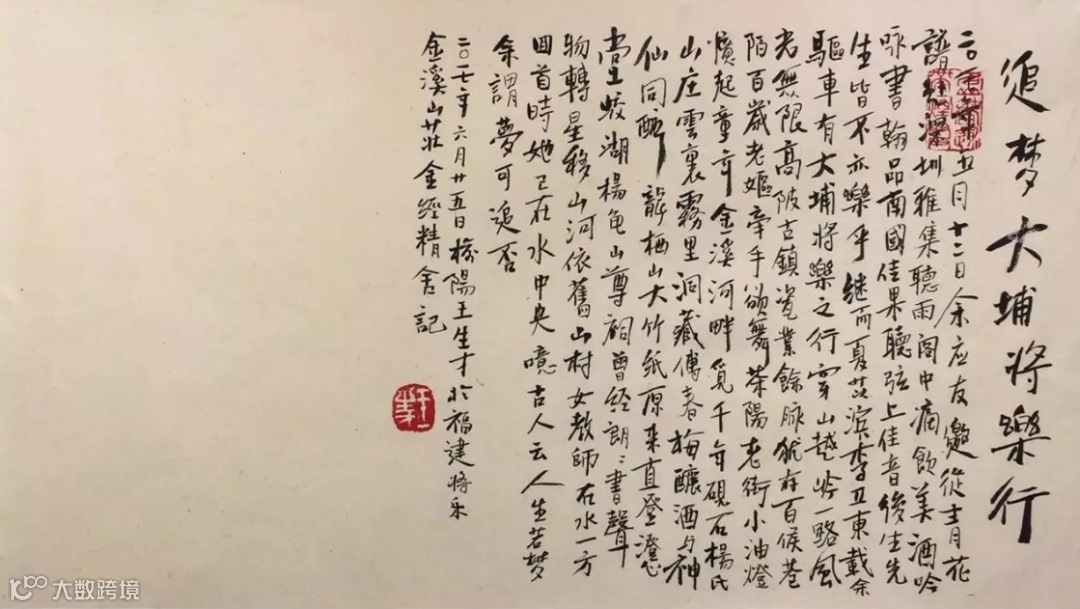 追梦大埔將樂行
二〇一七年五月十二日余应友邀從青月花
譜經深圳雅集聽雨阁中痛飲美酒吟
咏書翰品南國佳果聽弦上佳音後生先
生皆不亦樂乎继而夏苡滨李丑東載余
驅車有大埔將樂之行穿山越岭一路風
光無限高陂古鎮瓷業餘脉犹存百候巷
陌百歲老嫗牵手欲舞茶陽老街小油燈
憶起童年金溪河畔覓千年硯石楊氏
山庄雲裏霧里洞藏傅春梅釀酒与神
仙同醉龍栖山大竹紙原来直登澄心
堂蛟湖楊龟山尊祠曾经朗〻書聲
物轉星移山河依舊山村女教師右水一方
回首時她已在水中央噫古人云人生若梦
余謂夢可追否
二〇一七年六月廿五日 陽王生才於福建將乐
金溪山莊金經精舍記
大数跨境